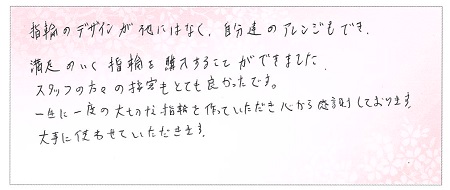 指輪のデザインが他にはなく、自分達のアレンジもでき、
満足のいく指輪を購入することができました。
スタッフの方々の対応もとても良かったです。
一生に一度の大切な指輪を作っていただき心から感謝しております。
大事に使わせていただきます。